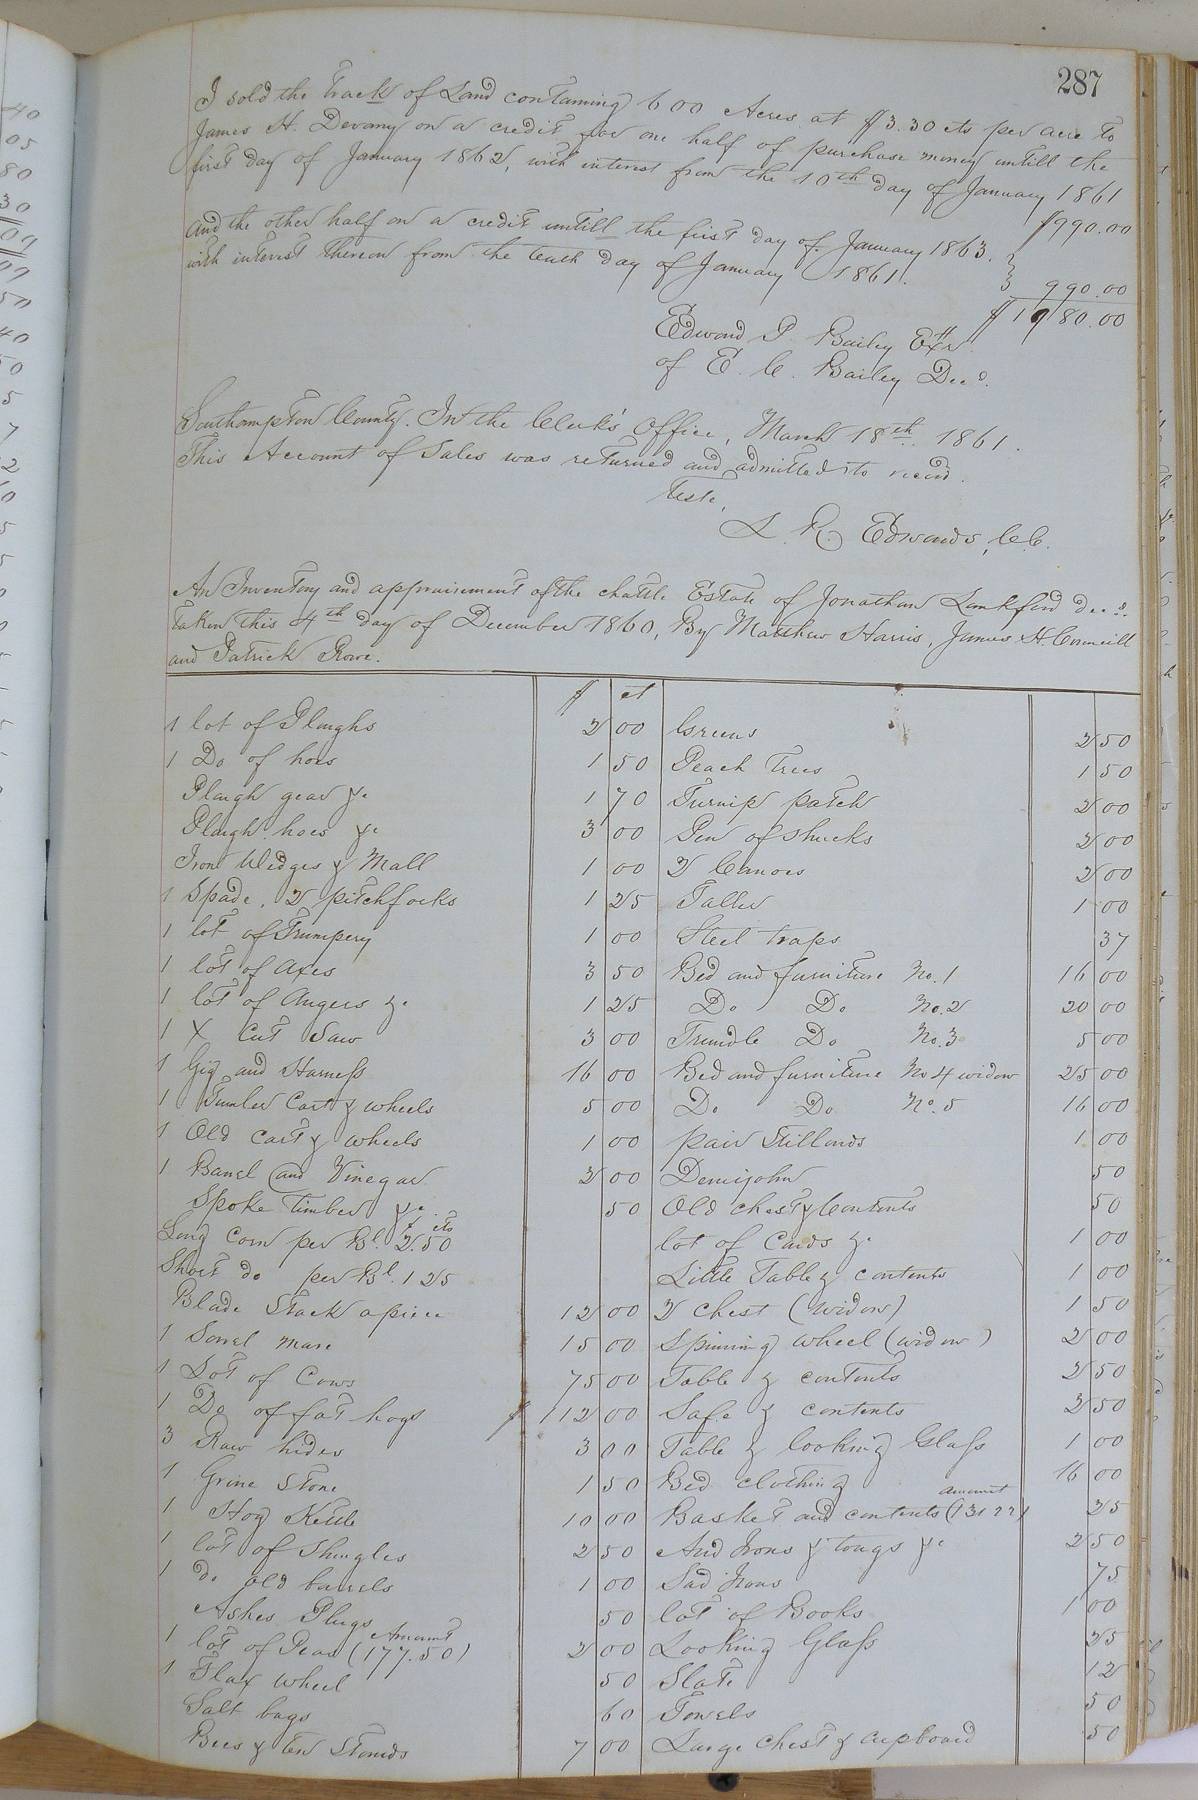 287
I sold the Track of Land containing 600 Acres at $3.30 cts per acre to
James H. Devany on a credit for one half of purchase money untill the
first day of January 1862, with interest from the 10th day of January 1861
$990.00
and the other half on a credit untill the first day of January 1863.
with interest thereon from the tenth day of January 1861.
990.00
$1980.00
Edward P. Bailey Exr
of E. C. Bailey Decd.
Southampton County. In the Clerk's Office, March 18th 1861.
This Account of Sales was returned and admitted to record.
Teste,
L. R. Edwards, C.C.
An Inventory and appraisement of the chattle Estate of Jonathan Lankford decd.
taken this 4th day of December 1860, By Matthew Harris, James H. Councill
and Patrick Rowe.
$ ct
1 lot of Ploughs 2 00
1 Do of hoes 1 50
Plough gear &c 1 70
Plough hoes &c 3 00
Iron Wedges & Mall 1 00
1 Spade, 2 pitchforks 1 25
1 lot of Trumpery 1 00
1 lot of Axes 3 50
1 lot of Augers &c 1 25
1 X Cut Saw 3 00
1 Gig and Harness 16 00
1 Tumler Cart & wheels 5 00
1 Old Cart & wheels 1 00
1 Barrel and Vinegar 2 00
Spoke Timber &c 50
Long Corn per Bl. $2.50 cts
Short do per Bl. 1 25
Blade Stack apiece 12 00
1 Sorrel mare 15 00
1 Lot of Cows 75 00
1 Do of fat hogs $112 00
3 Raw hides 3 00
1 Grine Stone 1 50
1 Hog Kettle 10 00
1 lot of Shingles 2 50
1 do old barrels 1 00
Ashes Plugs 50
1 lot of Peas (Amount 177.50) 2 00
1 Flax wheel 50
Salt bags 60
Bees & ten Stands 7 00
Greens 2 50
Peach Trees 1 50
Turnip patch 2 00
Pen of shucks 2 00
2 Canoes 2 00
Taller 1 00
Steel traps 37
Bed and furniture No. 1 16 00
Do Do No. 2 20 00
Trundle Do No. 3 5 00
Bed and furniture No 4 widow 25 00
Do Do No. 5 16 00
pair Stillards 1 00
Demijohn 50
Old chest & Contents 50
lot of Cards &c 1 00
Little Table & contents 1 00
2 chest (widow) 1 50
Spinning wheel (widow) 2 00
Table & contents 2 50
Safe & contents 2 50
Table & looking Glass 1 00
Bed clothing 16 00
Basket and contents (amount 131 22) 25
And Irons & tongs &c 2 50
Sad Irons 75
lot of Books 1 00
Looking Glass 25
Slate 12
Towels 50
Large chest & cupboard 50